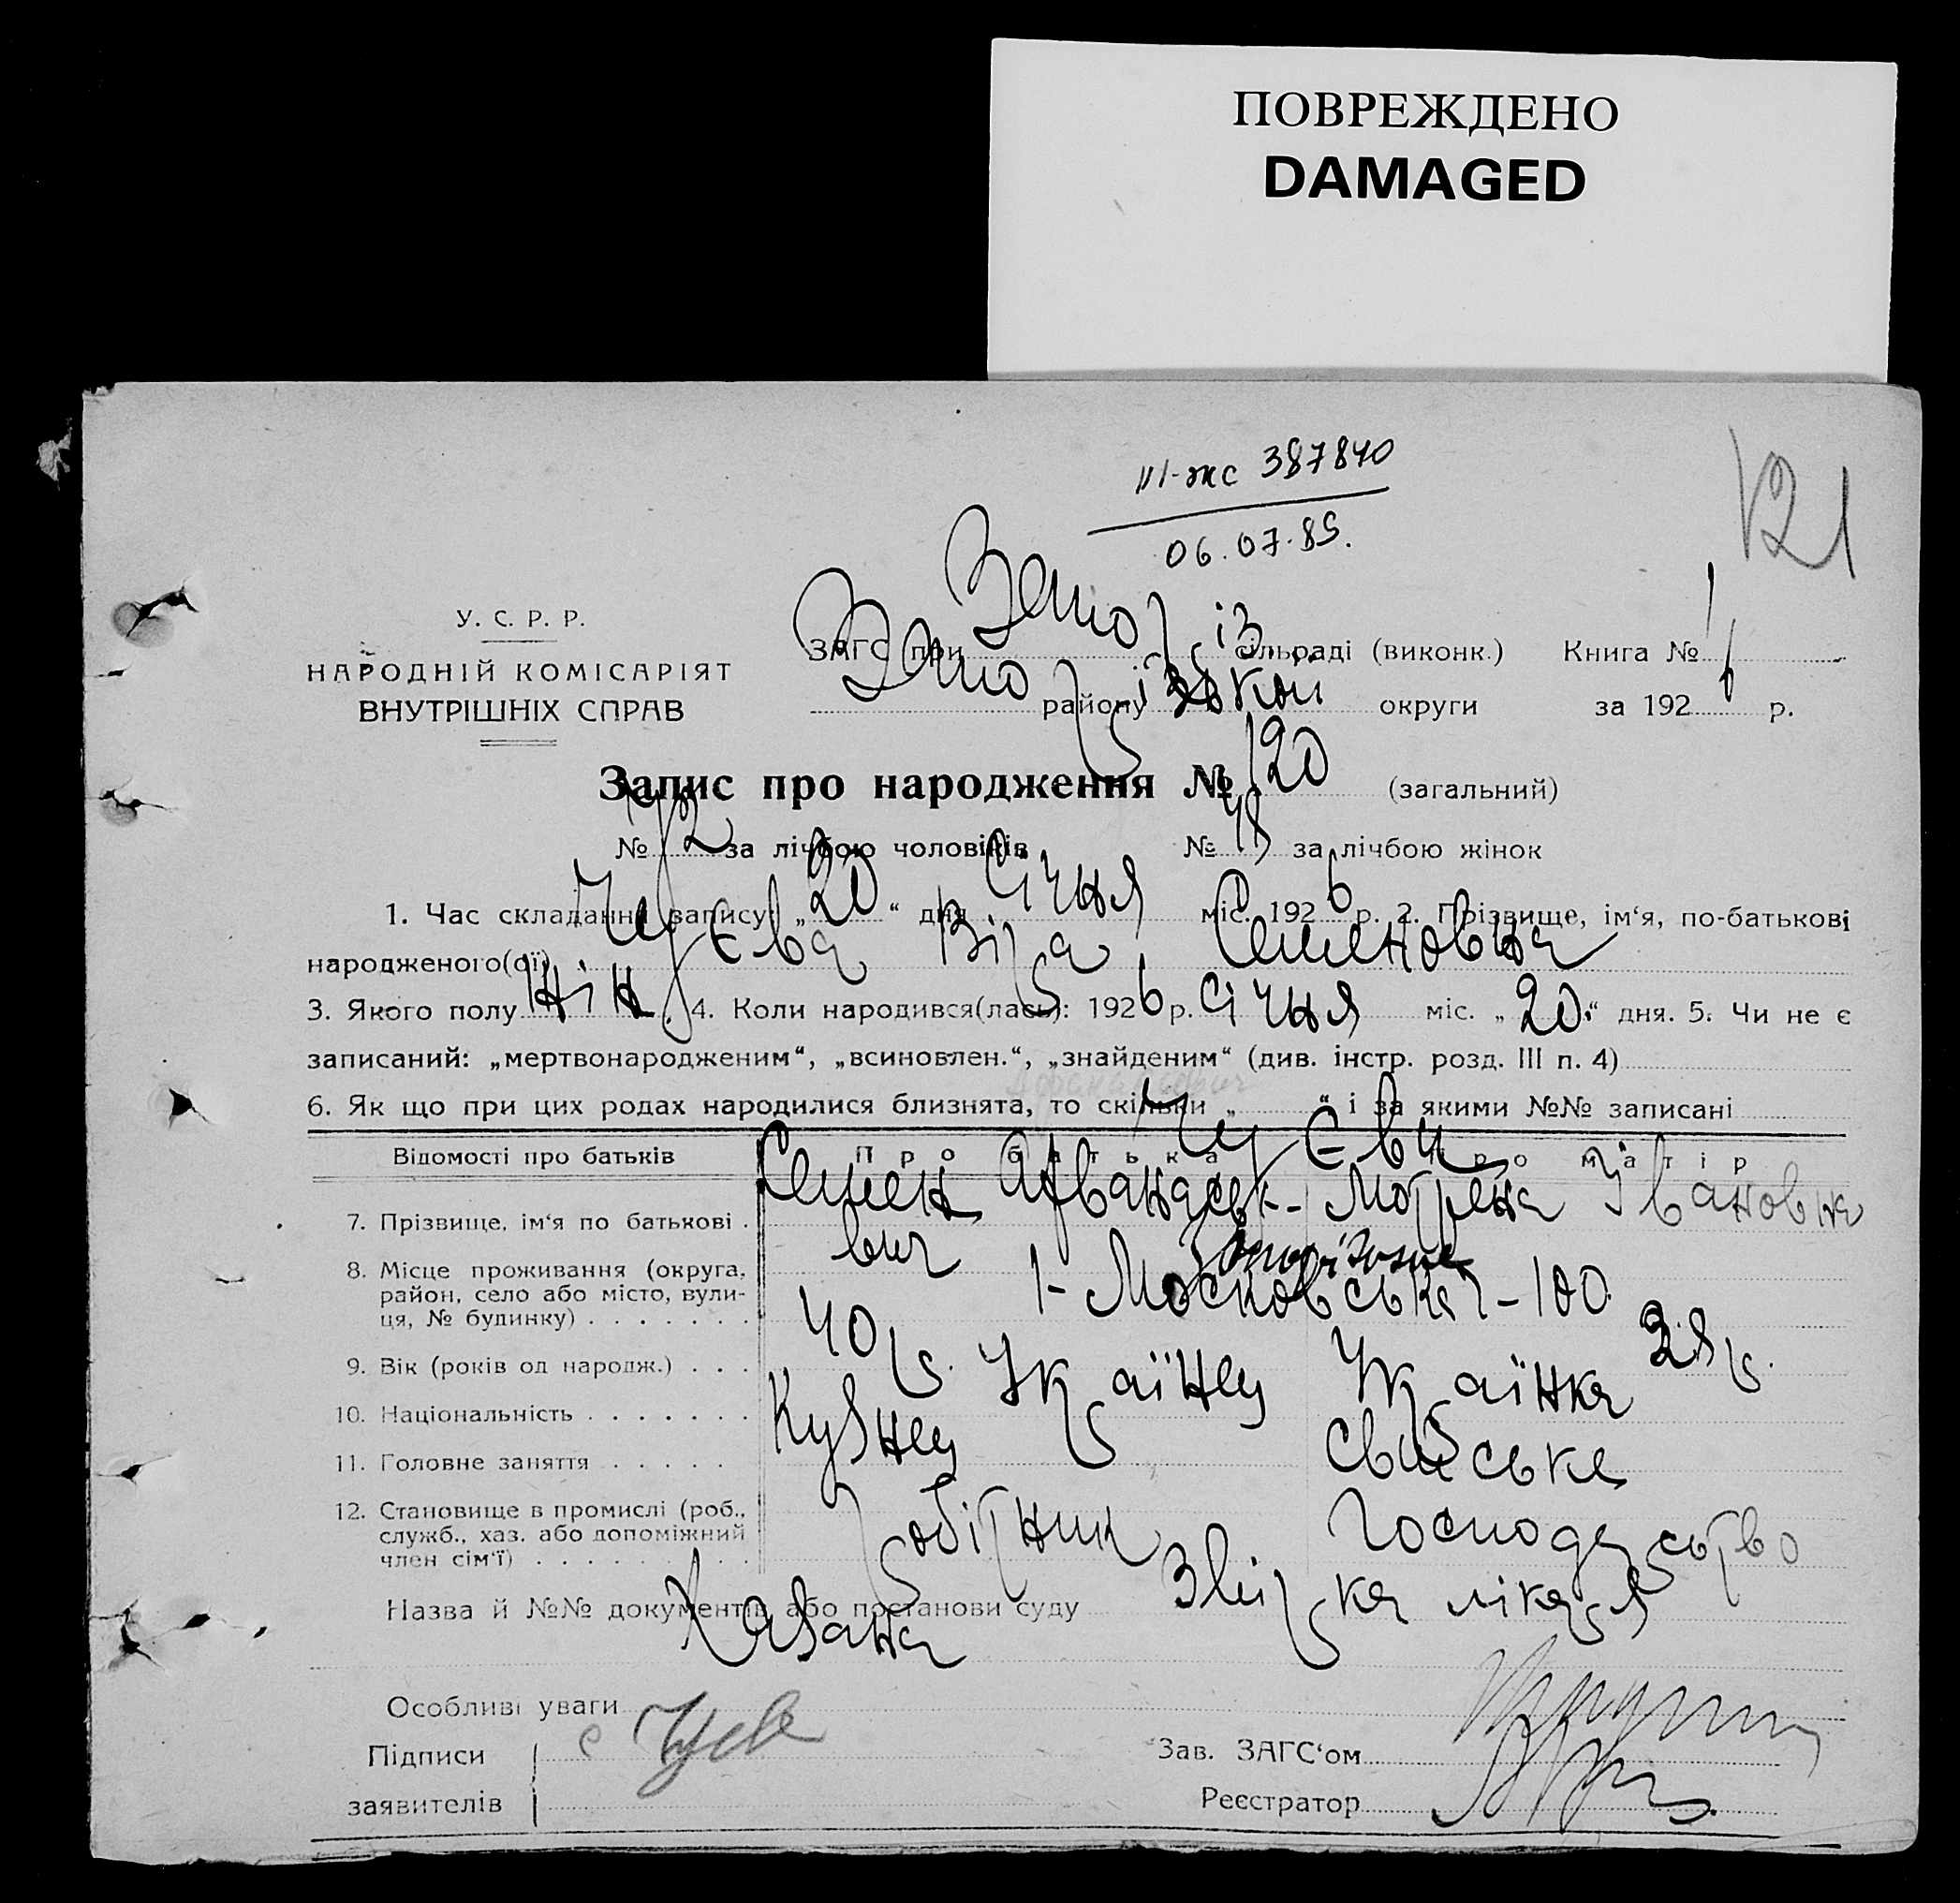 ПОВРЕЖДЕНО
DAMAGED
III-жс 387840
06.07.89.
121
У. С. Р. Р.
НАРОДНІЙ КОМІСАРІЯТ
ВНУТРІШНІХ СПРАВ
ЗАГС при Запоріз. сільраді (виконк.) Книга № 1
Запорізької району округи за 1926 р.
Запис про народження № 120 (загальний)
№ 72 за лічбою чоловіків № 48 за лічбою жінок
1. Час складання запису: „20“ дня Січня міс. 1926 р. 2. Прізвище, ім‘я, по-батькові
народженого(ої) Чуєва Віра Семеновна
3. Якого полу жін. 4. Коли народився(лась): 1926 р. Січня міс. „20“ дня. 5. Чи не є
записаний: „мертвонародженим“, „всиновлен.“, „знайденим“ (див. інстр. розд. III п. 4)
Афанасьевич
6. Як що при цих родах народилися близнята, то скільки „ “ і за якими №№ записані
Чуєви
Відомості про батьків Про батька Про матір
7. Прізвище, ім‘я по батькові . Семен Афванасьє- Мотрена Івановна
вич Запоріжжя
8. Місце проживання (округа, район, село або місто, вули-
ця, № будинку) . . . . . . . 1-Московська - 100
9. Вік (років од народж.) . . . 40 р. 28 р.
10. Національність . . . . . . . Українец Українка
11. Головне заняття . . . . . Кузнец Свійське
12. Становище в промислі (роб.,
служб., хаз. або допоміжний
член сім‘ї) . . . . . . . . . Робітник Господарство
Назва й №№ документів або постанови суду Звірка лікаря
Казана
Особливі уваги
Підписи С Чуев Зав. ЗАГС‘ом
заявителів Реєстратор